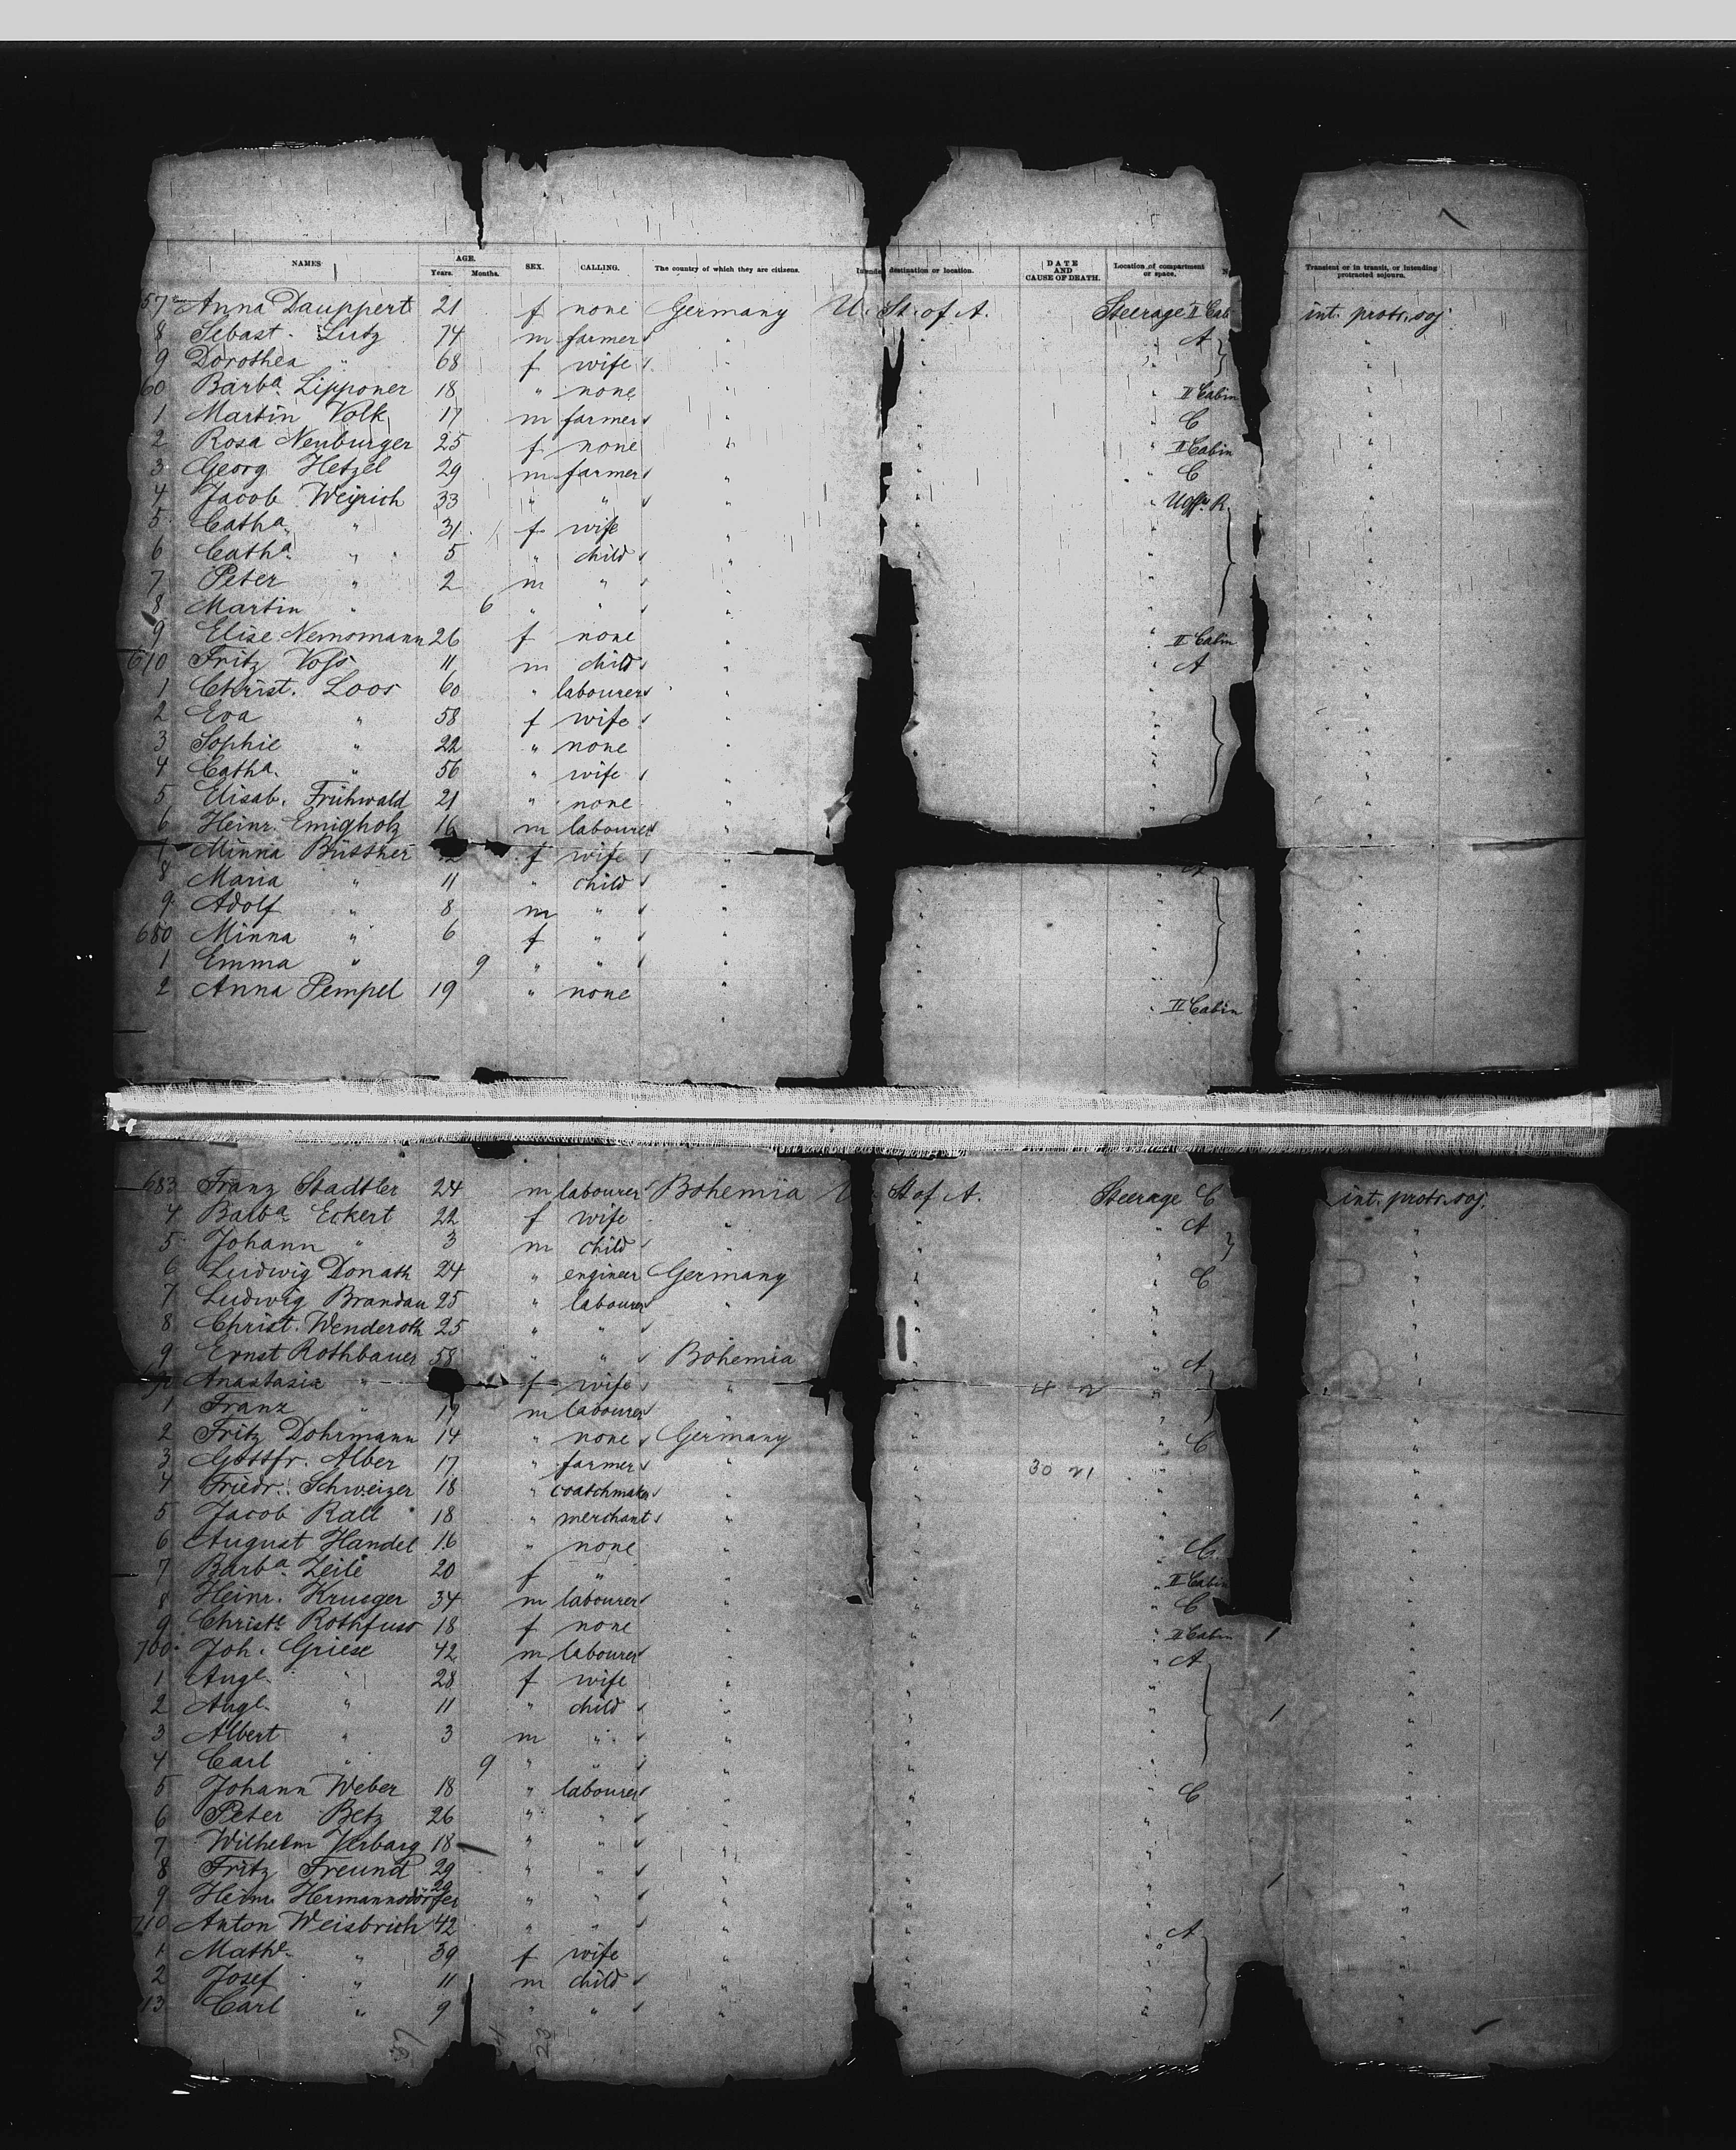 NAMES AGE. Years. Months. SEX. CALLING. The country of which they are citizens. Intended destination or location. DATE AND CAUSE OF DEATH. Location of compartment or space. Transient or in transit, or intending protracted sojourn.
57 Anna Dauppert 21 f none Germany U. St. of A. Steerage II Cab int. protr. soj.
8 Sebast. Lutz 74 m farmer " " A "
9 Dorothea " 68 f wife " " " "
60 Barba. Lipponer 18 " none " " " II Cabin "
1 Martin Volk 17 m farmer " " " C "
2 Rosa Neuburger 25 f none " " " II Cabin "
3 Georg Hetzel 29 m farmer " " " C "
4 Jacob Weyrich 33 " " " " " R. "
5 Catha. " 31 f wife " " " "
6 Catha. " 5 " child " " " "
7 Peter " 2 m " " " " "
8 Martin " 6 " " " " " "
9 Elise Nemsmann 26 f none " " " II Cabin "
670 Fritz Voss 11 m child " " " A "
1 Christ. Loos 60 " labourer " " "
2 Eva " 58 f wife " " " "
3 Sophie " 22 " none " " " "
4 Catha. " 56 " wife " " " "
5 Elisab. Frühwald 21 " none " " " "
6 Heinr. Emigholz 16 m labourer " "
7 Minna Büttner f wife " "
8 Maria " 11 " child " " A "
9 Adolf " 8 m " " " " "
680 Minna " 6 f " " " " "
1 Emma " 9 " " " " " "
2 Anna Pempel 19 " none " " " II Cabin "
683 Franz Stadtler 24 m labourer Bohemia St of A. Steerage C int. protr. soj.
4 Balba. Eckert 22 f wife " " " A "
5 Johann " 3 m child " " " "
6 Ludwig Donath 24 " engineer Germany " " C "
7 Ludwig Brandau 25 " labourer " " " "
8 Christ. Wenderoth 25 " " " " "
9 Ernst Rothbauer 58 " " Bohemia " " A "
Anastasia " f wife " " "
1 Franz " 19 m labourer " " " "
2 Fritz Dohrmann 14 " none Germany " " C "
3 Gottfr. Alber 17 " farmer " " 30 21 " "
4 Friedr. Schweizer 18 " coatchmaker " " " "
5 Jacob Rall 18 " merchant " " " "
6 August Handel 16 " none " " " C "
7 Barba. Zeile 20 f " " " " II Cabin "
8 Heinr. Krueger 34 m labourer " " " C "
9 Christe. Rothfuss 18 f none " " " II Cabin "
700 Joh. Griese 42 m labourer " " " A "
1 Augl. " 28 f wife " " " "
2 Augl. " 11 " child " " " "
3 Albert " 3 m " " " " "
4 Carl " 9 " " " " " "
5 Johann Weber 18 " labourer " " " C "
6 Peter Betz 26 " " " " " "
7 Wilhelm 18 " " " " " "
8 Fritz Freund 29 " " " " " "
9 Heinr. Hermannsdörfer 29 " " " " " "
710 Anton Weisbrich 42 " " " " " A "
1 Mathe. " 39 f wife " " " "
2 Josef " 11 m child " " " "
13 Carl " 9 " " " " " "
23